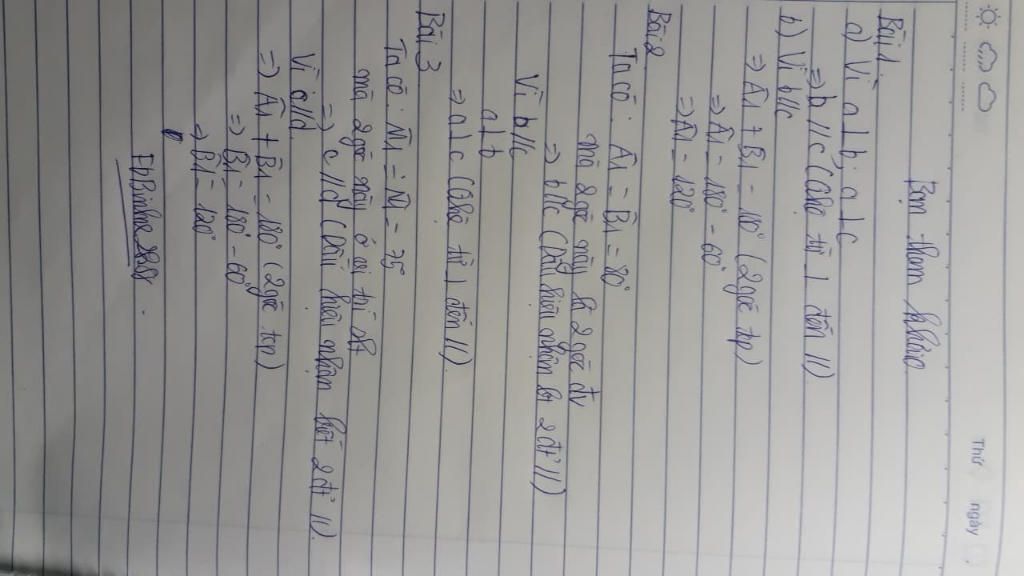 Thứ ngày
Bạn tham khảo
Bài 1.
a) Vì a ⊥ b; a ⊥ c
=> b // c (Quhệ từ ⊥ đến //)
b) Vì b // c
=> Â1 + B̂1 = 180° (2 góc tcp)
=> Â1 = 180° - 60°
=> Â1 = 120°
Bài 2
Ta có: Â1 = B̂1 = 80°
mà 2 góc này là 2 góc đv
=> b // c (Dấu hiệu nhận bt 2 đt' //)
Vì b // c
a ⊥ b
=> a ⊥ c (Qhệ từ ⊥ đến //)
Bài 3
Ta có: M̂1 = N̂1 = 75
mà 2 góc này ở vị trí slt
=> c // d (Dấu hiệu nhận biết 2 đt' //)
Vì c // d
=> Â1 + B̂1 = 180° (2 góc tcp)
=> B̂1 = 180° - 60°
=> B̂1 = 120°